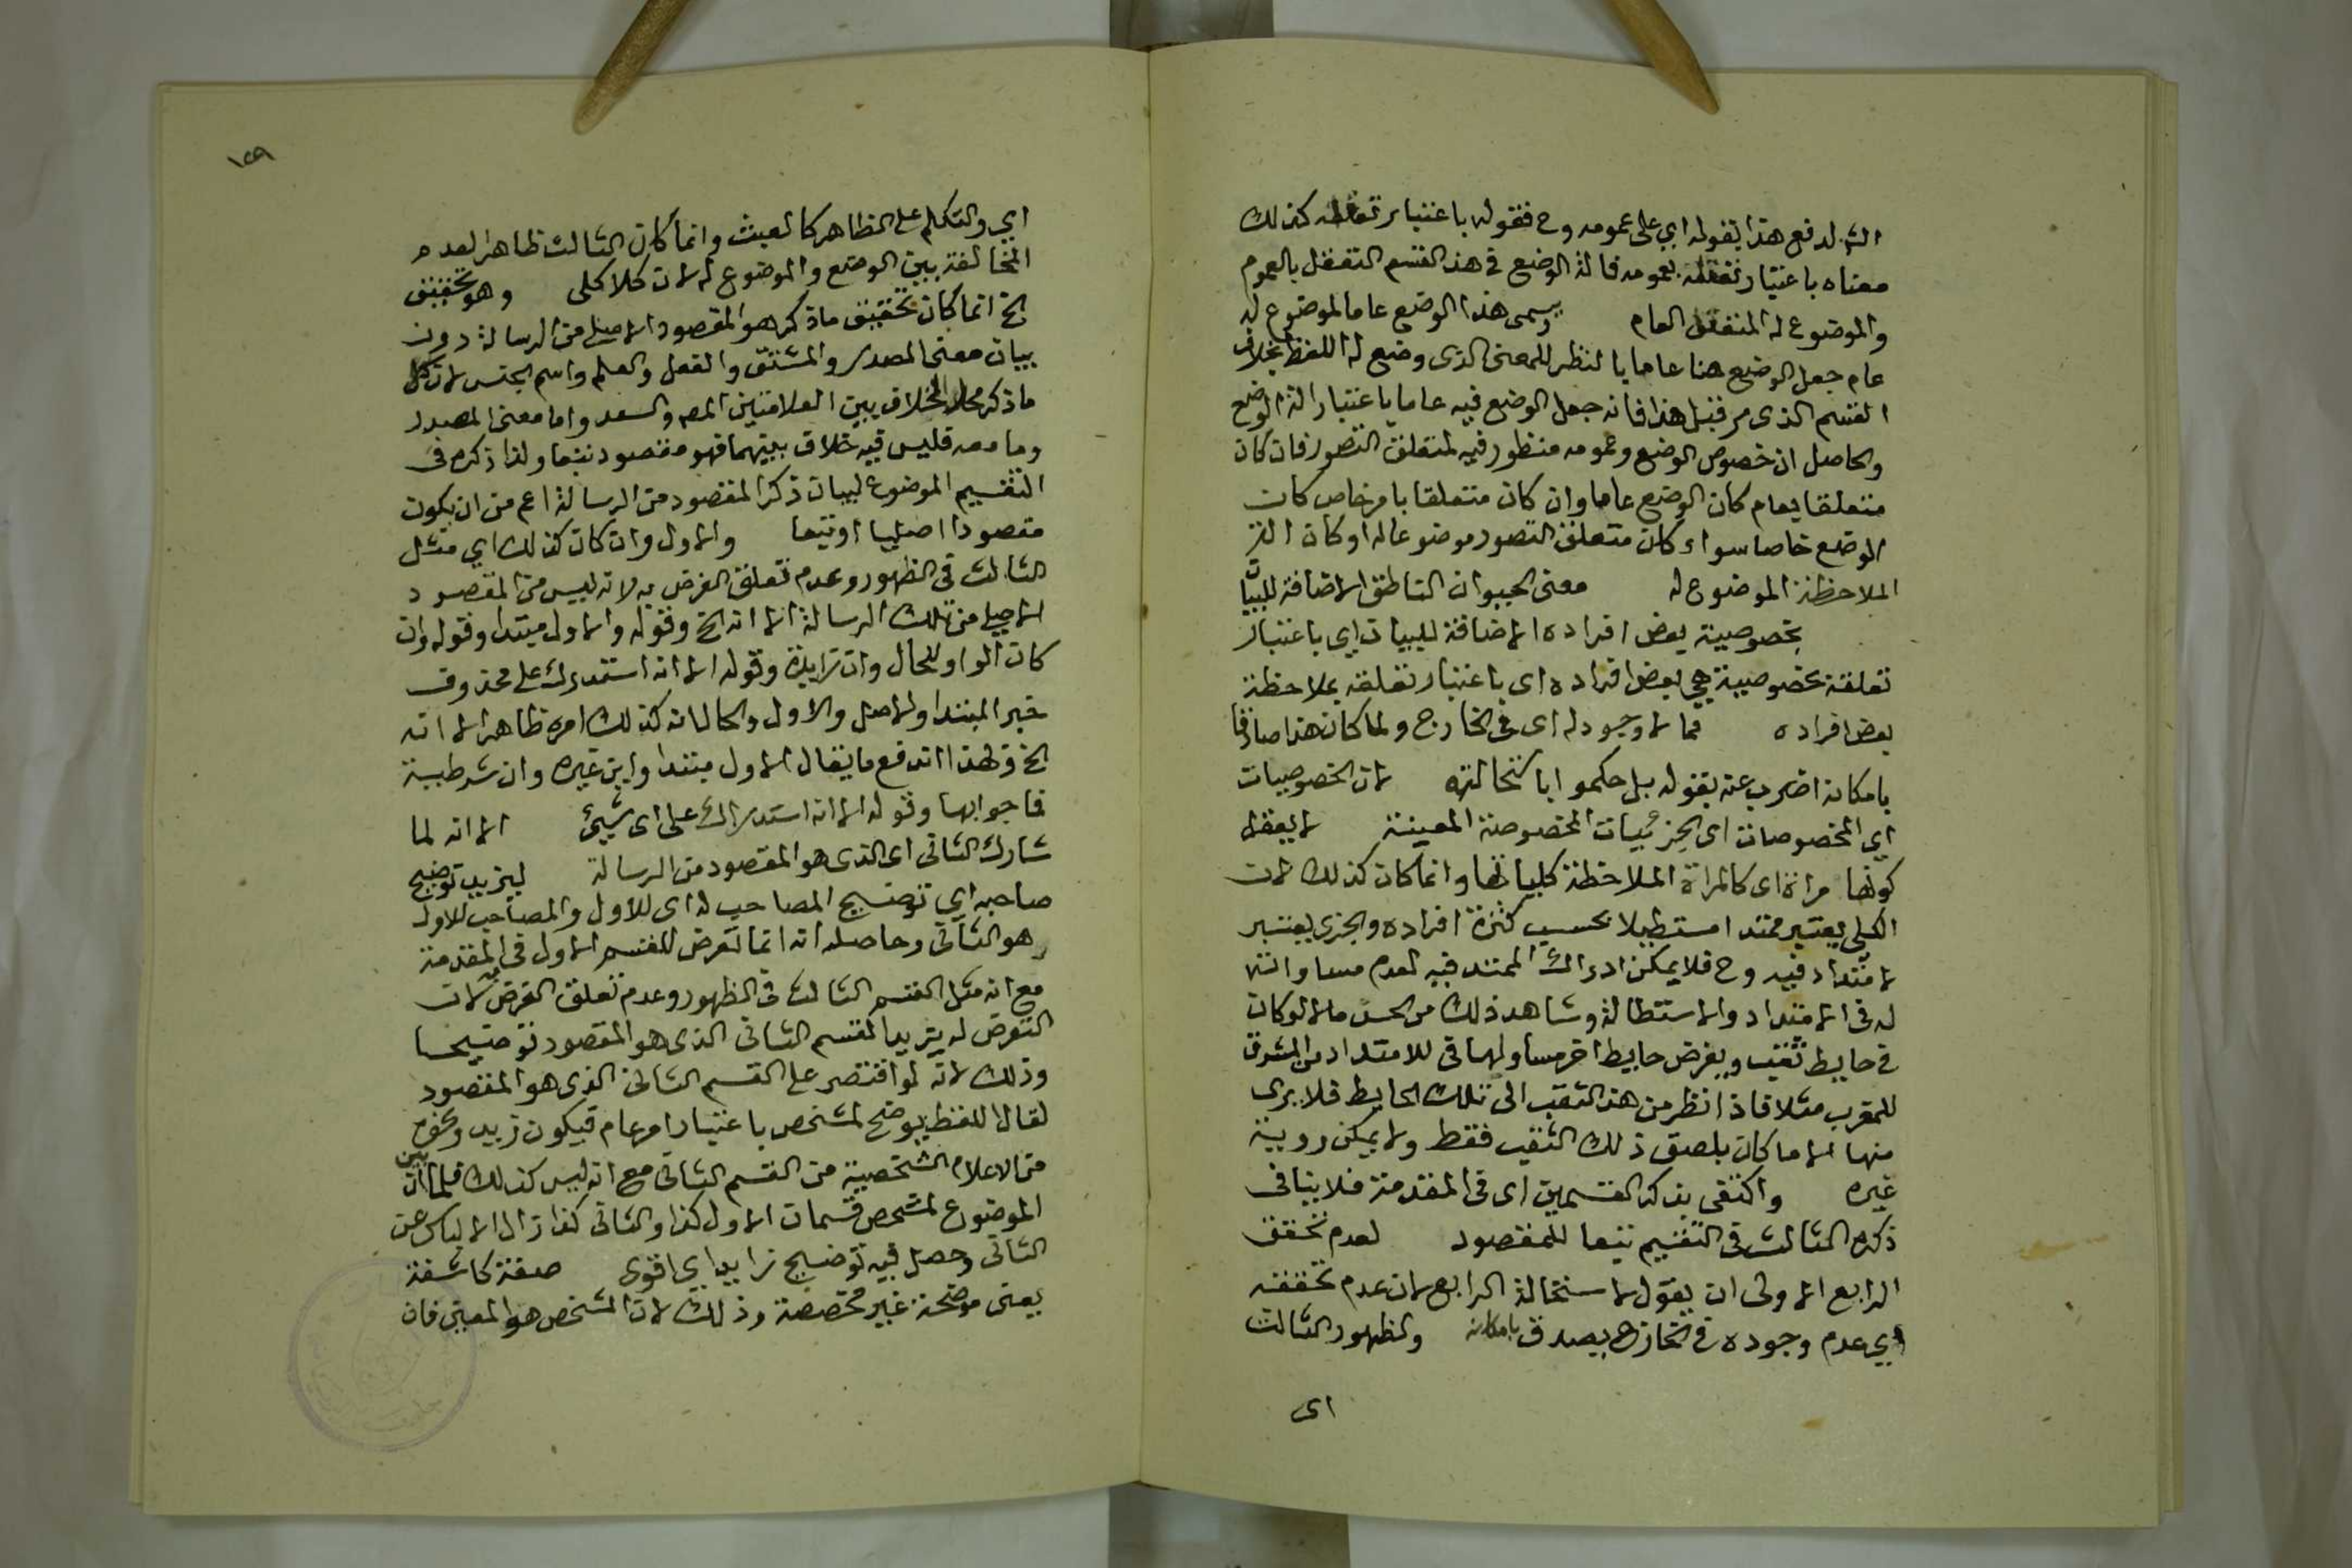 الش لدفع هذا بقوله اي على عمومه وح فقوله باعتبار تعقله كذلك
معناه باعتبار تعقله بعمومه فالة الوضع في هذا القسم التعقل بالعموم
والموضوع له المتعقل العام ويسمى هذا الوضع عاما لموضوع له
عام جعل الوضع هنا عاما بالنظر للمعنى الذى وضع له اللفظ بخلاف
القسم الذى مر قبل هذا فانه جعل الوضع فيه عاما باعتبار الة الوضع
والحاصل ان خصوص الوضع وعمومه منظور فيه لمتعلق التصور فان كان
متعلقا بعام كان الوضع عاما وان كان متعلقا بامر خاص كان
الوضع خاصا سواء كان متعلق التصور موضوعا له او كان الة
الملاحظة الموضوع له معنى الحيوان الناطق الاضافة للبيان
بخصوصية بعض افراده الاضافة للبيان اي باعتبار
تعلقه بخصوصية هي بعض افراده اى باعتبار تعلقه بملاحظة
بعض افراده فما لا وجود له اى في الخارج ولما كان هذا صادقا
بامكانه اضرب عنه بقوله بل حكموا باستحالته لان الخصوصيات
اي المخصوصات اى الجزئيات المخصوصة المعينة لا يعقل
كونها مراة اى كالمراة لملاحظة كلياتها وانما كان كذلك لان
الكلي يعتبر ممتدا مستطيلا بحسب كثرة افراده والجزى يعتبر
لا امتداد فيه وح فلا يمكن ادراك الممتد فيه لعدم مساواته
له في الامتداد والاستطالة وشاهد ذلك من الحس ما لو كان
في حايط ثقب ويفرض حايط اخر مساو لها في للامتداد من المشرق
للمغرب مثلا فاذا نظر من هذا الثقب الى تلك الحايط فلا يرى
منها الا ما كان بلصق ذلك الثقب فقط ولا يمكن روية
غيره واكتفى بذكر القسمين اى في المقدمة فلا ينافى
ذكره الثالث في التقسيم تبعا للمقصود لعدم تحقق
الرابع الاولى ان يقول لاستحالة الرابع لان عدم تحققه
اي عدم وجوده في الخارج يصدق بامكانه ولظهور الثالث
اى
١٢٩
اي والتكلم على الظاهر كالعبث وانما كان الثالث ظاهرا لعدم
المخالفة بين الوضع والموضوع له لان كلا كلى وهو تحقيق
الخ انما كان تحقيق ما ذكر هو المقصود الاصلى من الرسالة دون
بيان معنى المصدر والمشتق والفعل والعلم واسم الجنس لان كل
ما ذكر محل الخلاف بين العلامتين المصر والسعد واما معنى المصدر
وما معه فليس فيه خلاف بينهما فهو مقصود تبعا ولذا ذكره في
التقسيم الموضوع لبيان ذكر المقصود من الرسالة اعم من ان يكون
مقصودا اصليا او تبعا والاول وان كان كذلك اي مثل
الثالث في الظهور وعدم تعلق الغرض به لانه ليس من المقصود
الاصلي من تلك الرسالة الا انه الخ وقوله والاول مبتدا وقوله وان
كان الواو للحال وان زايدة وقوله الا انه استدراك على محذوف
خبر المبتدا والاصل والاول والحال انه كذلك امره ظاهر الا انه
الخ وبهذا اندفع ما يقال الاول مبتدا واين خبره وان شرطية
فما جوابها وقوله الا انه استدراك على اى شيئ الا انه لما
شارك الثانى اى الذى هو المقصود من الرسالة ليزيد توضيح
صاحبه اي توضيح المصاحب له اى للاول والمصاحب للاول
هو الثانى وحاصله انه انما تعرض للقسم الاول في المقدمة
مع انه مثل القسم الثالث في الظهور وعدم تعلق الغرض به لان
التعرض له يزيد القسم الثانى الذى هو المقصود توضيحا
وذلك لانه لو اقتصر على القسم الثانى الذى هو المقصود
لقال اللفظ يوضع لمشخص باعتبار امر عام فيكون زيد ونحوه
من الاعلام الشخصية من القسم الثانى مع انه ليس كذلك فلما بين ان
الموضوع لمشخص قسمان الاول كذا والثانى كذا زال الالباس عن
الثانى وحصل فيه توضيح زايد اي اقوى صفة كاشفة
يعنى موضحة غير مخصصة وذلك لان المشخص هو المعين فان